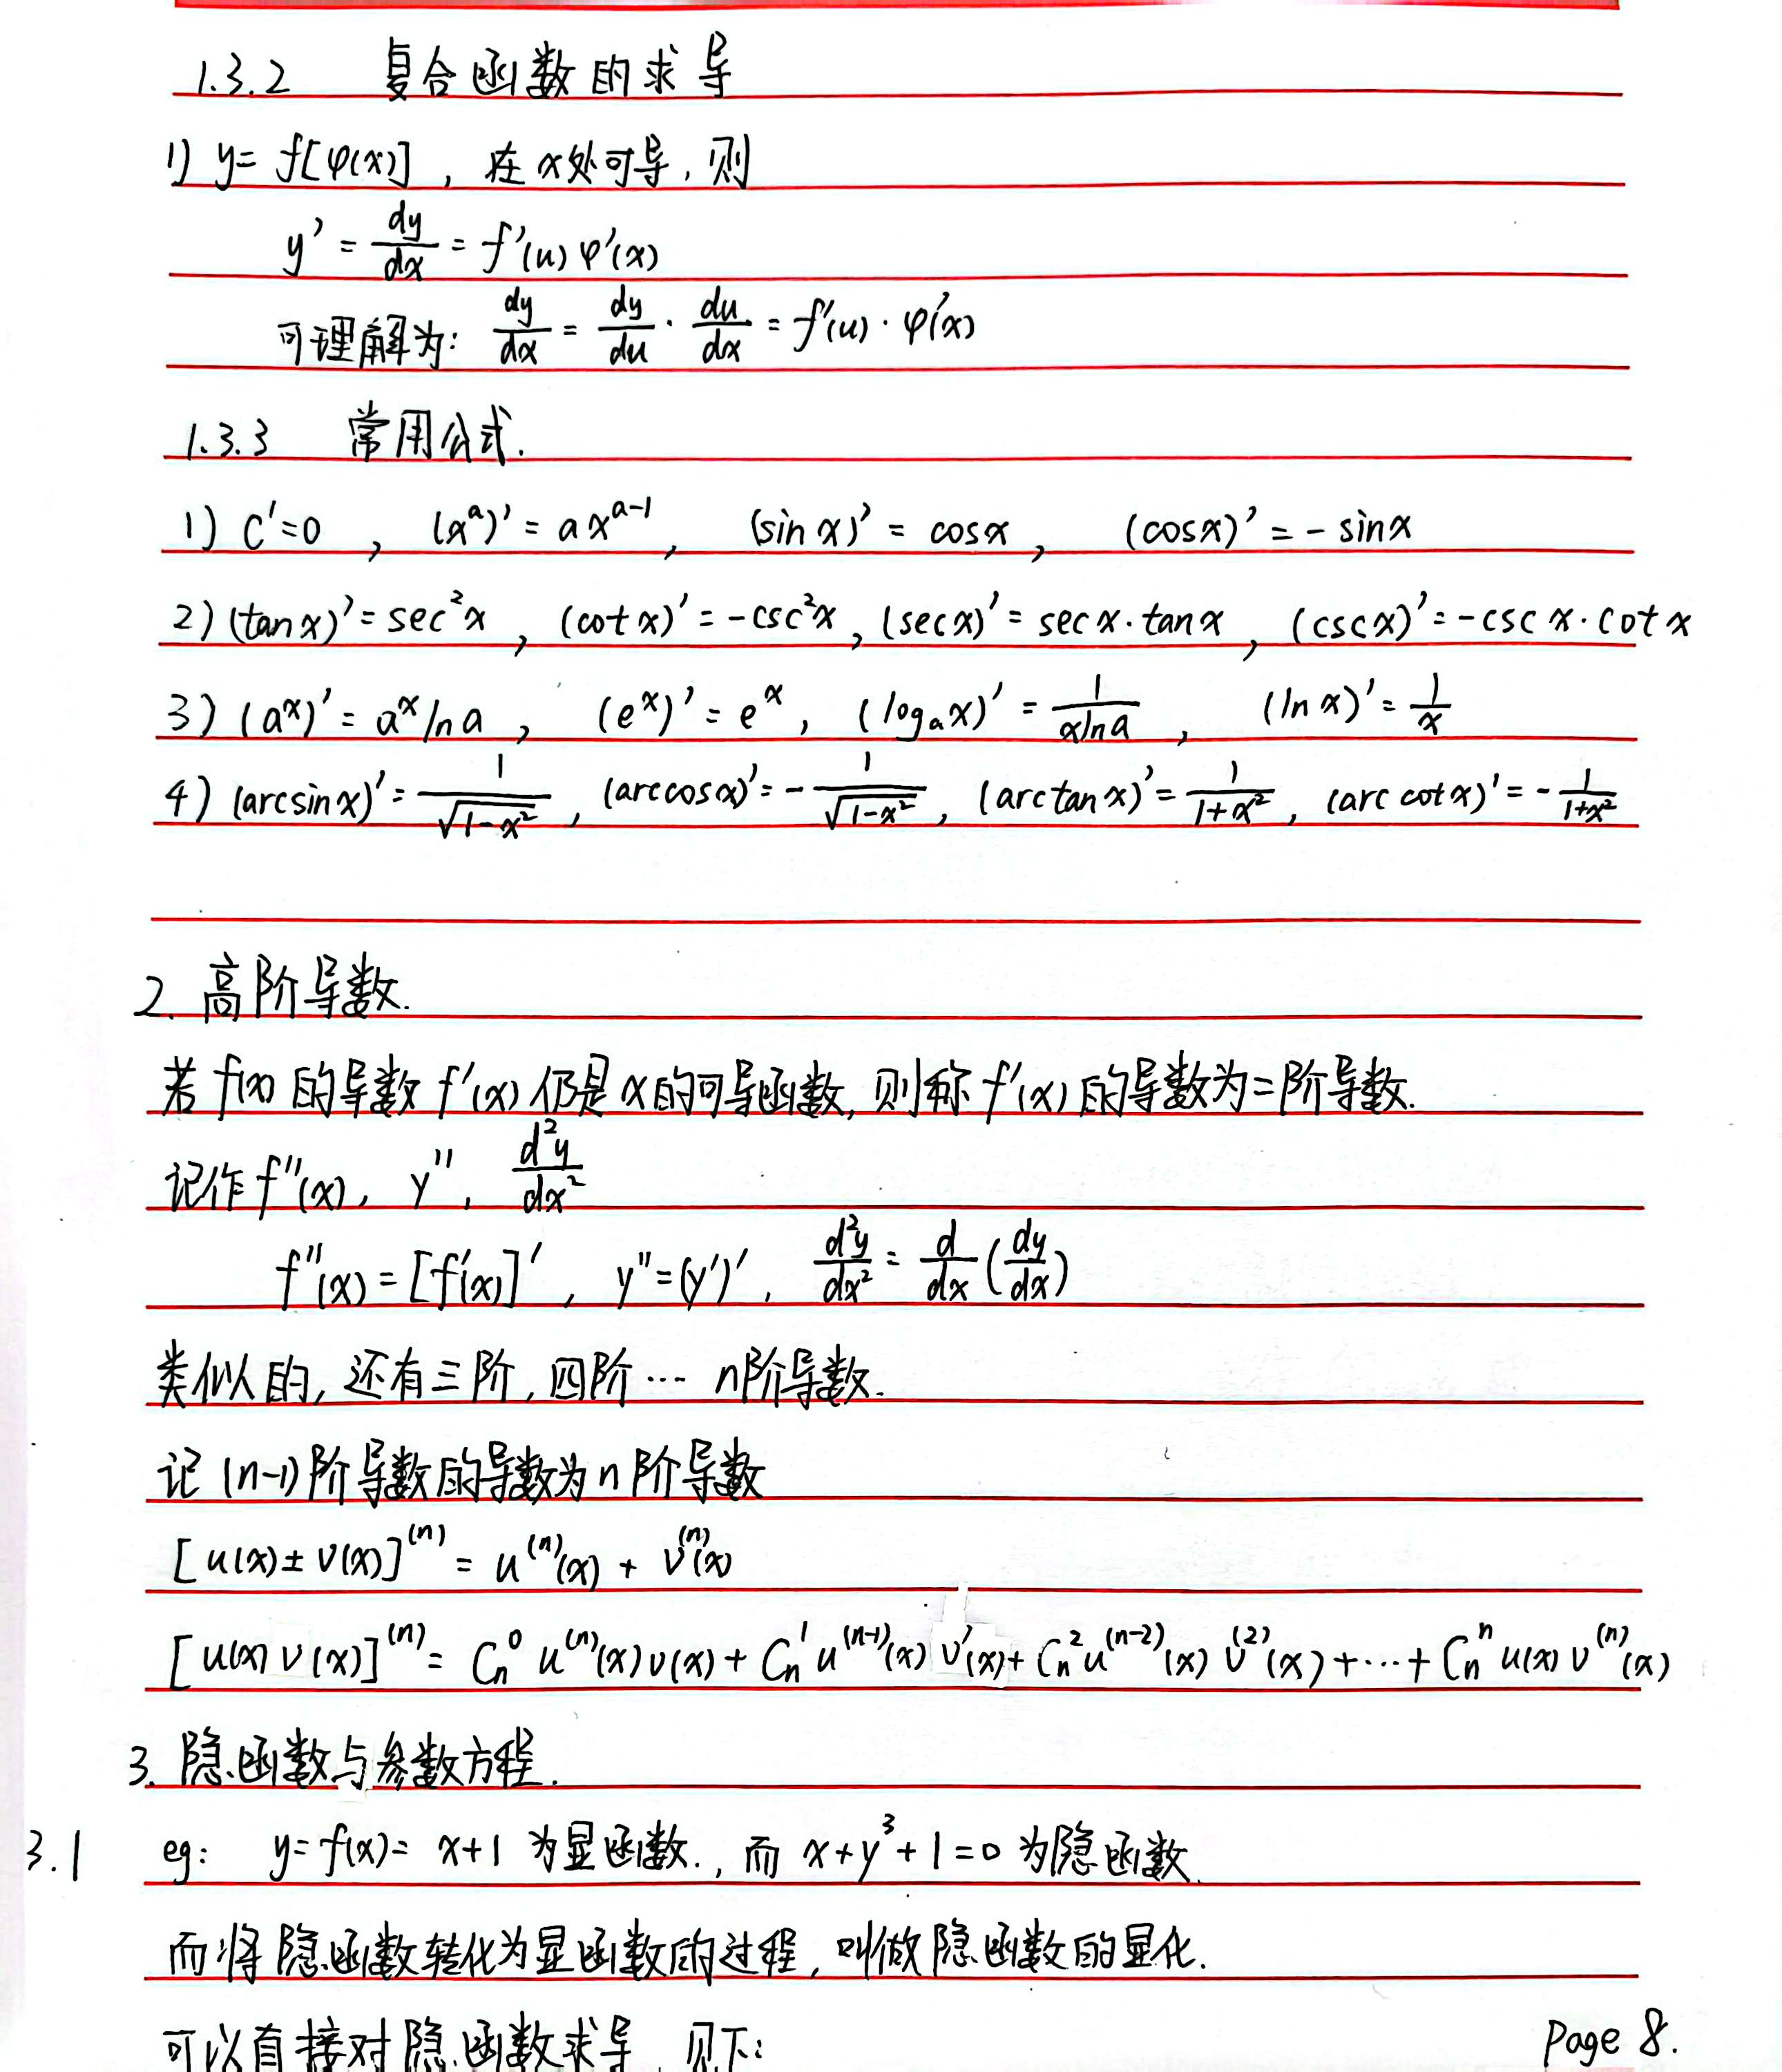 1.3.2 复合函数的求导
1) y = f[φ(x)], 在x处可导, 则
y' = dy/dx = f'(u) φ'(x)
可理解为: dy/dx = dy/du · du/dx = f'(u) · φ'(x)
1.3.3 常用公式.
1) C'=0, (x^a)' = a x^(a-1), (sin x)' = cosx, (cosx)' = - sinx
2) (tanx)' = sec²x, (cotx)' = -csc²x, (secx)' = secx·tanx, (cscx)' = -cscx·cotx
3) (a^x)' = a^x ln a, (e^x)' = e^x, (log_a x)' = 1/(xlna), (ln x)' = 1/x
4) (arcsinx)' = 1/√(1-x²), (arccosx)' = - 1/√(1-x²), (arctanx)' = 1/(1+x²), (arccotx)' = - 1/(1+x²)
2. 高阶导数.
若f(x)的导数f'(x)仍是x的可导函数, 则称f'(x)的导数为二阶导数.
记作f''(x), y'', d²y/dx²
f''(x) = [f'(x)]', y''=(y')', d²y/dx² = d/dx (dy/dx)
类似的, 还有三阶, 四阶… n阶导数.
记(n-1)阶导数的导数为n阶导数
[u(x)±v(x)]^(n) = u^(n)(x) + v^(n)(x)
[u(x)v(x)]^(n) = C_n^0 u^(n)(x)v(x) + C_n^1 u^(n-1)(x)v'(x) + C_n^2 u^(n-2)(x) v^(2)(x) +…+ C_n^n u(x) v^(n)(x)
3. 隐函数与参数方程.
3.1 eg: y=f(x)= x+1 为显函数., 而 x+y³+1=0 为隐函数.
而将隐函数转化为显函数的过程, 叫做隐函数的显化.
可以直接对隐函数求导, 见下:
Page 8.